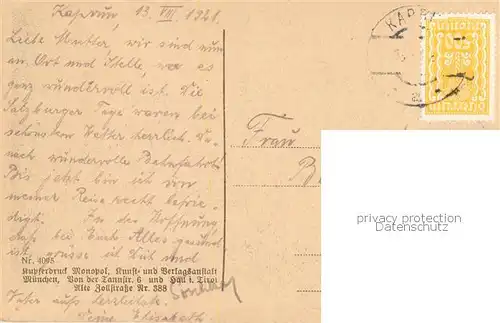 Kaprun, 13. VIII. 1921.
Liebe Mutter, wir sind nun
an Ort und Stelle, wo es
ganz wundervoll ist. Die
Salzburger Tage waren bei
schönstem Wetter herrlich. Da-
nach wundervolle Bahnfahrt!
Bis jetzt bin ich von
meiner Reise recht befrie-
digt. In der Hoffnung,
daß bei Euch Alles gesund
ist, grüsse ich Dich und
Nr. 4098
Kupferdruck Monopol, Kunst- und Verlagsanstalt
München, Von der Tannstr. 6 und Hall i. Tirol
Alte Zollstraße Nr. 388
Vater aufs herzlichste.
Deine Elisabeth
KAPR
Frau
privacy protection
watermark